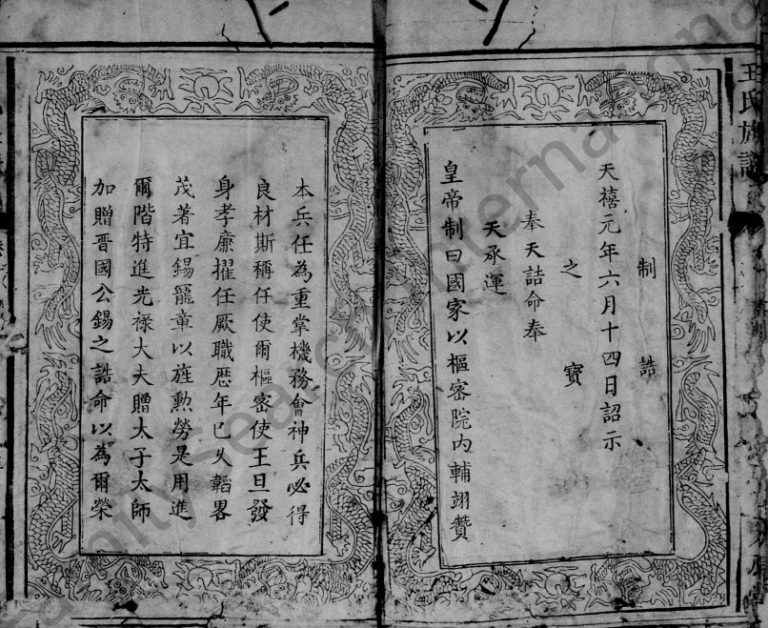 王氏族譜
制誥
天禧元年六月十四日詔示
之寶
奉天誥命奉
天承運
皇帝制曰國家以樞密院內輔翊贊
本兵任為重掌機務會神兵必得
良材斯稱任使爾樞密使王旦發
身孝廉擢任厥職歷年已久韜畧
茂著宜錫寵章以旌勲勞是用進
爾階特進光祿大夫贈太子太師
加贈晋國公錫之誥命以為爾榮
FamilySearch International